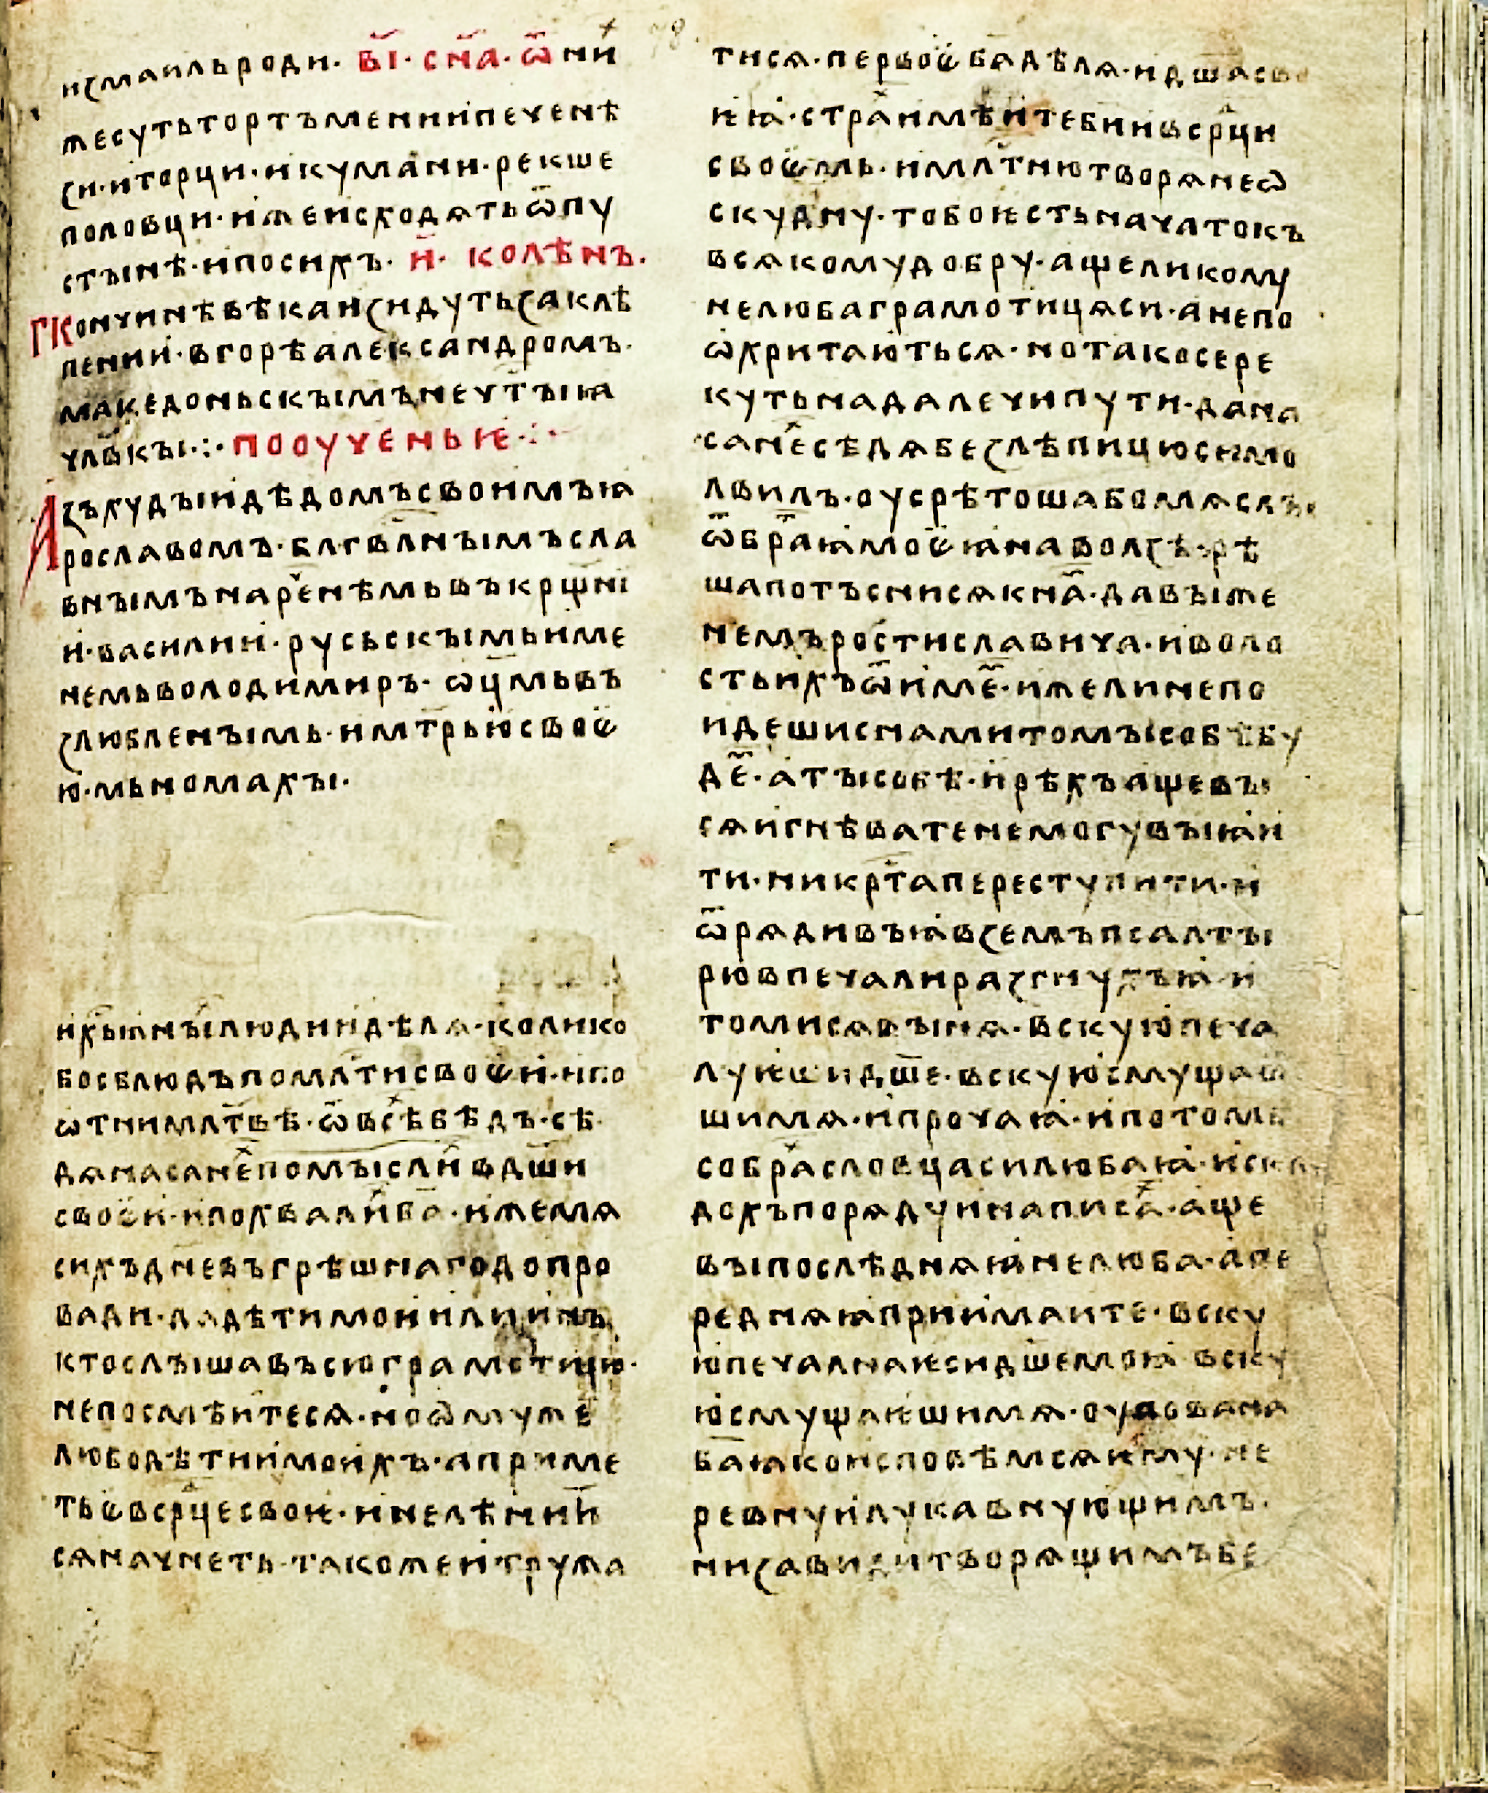 исмаильроди · в҃і · сн҃а · ѿ ни
жесутьтортъменииıпеченѣ
си · иторци · икумани · рекше
половци · ижеисходѧтьѿпу
стынѣ · ипосихъ · и҃ · колѣнъ ·
кончинѣвѣкаизидутьзаклѣ
пении · вгорѣалександромъ ·
македоньскымънечⷭ҇тыꙗ
члв҃кы ·:· поѹученьѥ ·:·
Азъхудыидѣдомъсвоимъꙗ
рославомъ · блгⷭ҇влнымъсла
внымънарⷭ҇енѣмьвъкрщ҃ні
и · василии · русьскымьиме
немьволодимиръ · ѡц҃мьвъ
злюбленымь · имтр҃ьюсвоѥ
ю · мьномахы ·
ихъⷭ҇ꙗныⷯлюдиидѣлѧ · колико
босблюдъпомлⷭ҇тисвоѥи · ипо
ѡтнимлт҃вѣ · ѿвсѣⷯбѣдъ · сѣ
дѧнасанеⷯпомыслиⷯвдш҃и
своѥи · ипохвалиⷯба҃ · ижемѧ
сихъдневъгрѣшнагодопро
вади · дадѣтимоиилиинъ
ктослышавъсюграмотицю ·
непосмѣитесѧ · ноѡмуже
любодѣтиимоихъ · априме
тьѥвсрⷣцесвоѥ · инелѣниⷮ
сѧначнеть · такожеитружа
тисѧ · первоѥба҃дѣлѧ · идш҃асво
ѥꙗ · страⷯимѣитеби҃ивсрⷣци
своѥмь · имлⷭ҇тнютворѧнеѡ
скудну · тобоѥстьначатокъ
всѧкомудобру · ащеликому
нелюбаграмотицѧси · анепо
ѡхритаютьсѧ · нотакосере
куть надалечипути · дана
санеⷯсѣдѧбезлѣпицюсимо
лвилъ · оусрѣтошабомѧслы
ѿбраⷮꙗмоѥꙗнаволзѣ · рѣ
шапотъснисѧкна҃ · давыже
немъростиславича · иволо
стьихъѿимеⷨ · ижелинепо
идешиснамитомысобѣбу
деⷨ · атысобѣ · ирѣхъащевы
сѧигнѣватенемогувыꙗи
ти · никрⷭ҇тапереступити · и
ѿрѧдивыꙗвземъпсалты
рювпечалиразгнухъꙗ · и
томисѧвынѧ · вскуюпеча
луѥшидш҃е · вскуюсмущаѥ
шимѧ · ипрочаꙗ · ипотомь
собраⷯсловцасилюбаꙗ · искла
дохъпорѧдуинаписаⷯ · аще
выпослѣднѧꙗнелюба · апе
реднѧꙗприимаите · вску
юпечалнаѥсидш҃емоꙗ · вску
юсмущаѥшимѧ · оуповаина
ба҃ꙗкоисповѣмсѧѥму · не
ревнуилукавнующимъ ·
низавидитворѧщимъбе